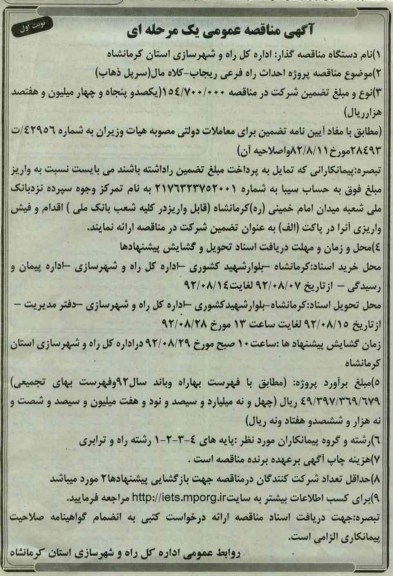 آگهی مناقصه عمومی یک مرحله ای
نوبت اول
۱)نام دستگاه مناقصه گذار: اداره کل راه و شهرسازی استان کرمانشاه
۲)موضوع مناقصه پروژه احداث راه فرعی ریجاب-کلاه مال(سرپل ذهاب)
۳)نوع و مبلغ تضمین شرکت در مناقصه ۱۵۴/۷۰۰/۰۰۰(یکصدو پنجاه و چهار میلیون و هفتصد
هزارریال)
(مطابق با مفاد آیین نامه تضمین برای معاملات دولتی مصوبه هیات وزیران به شماره ۴۲۹۵۶/ت
۲۸۴۹۳مورخ۸۲/۸/۱۱واصلاحیه آن)
تبصره:پیمانکارانی که تمایل به پرداخت مبلغ تضمین راداشته باشند می بایست نسبت به واریز
مبلغ فوق به حساب سیبا به شماره ۲۱۷۶۳۲۳۷۵۲۰۰۱ به نام تمرکز وجوه سپرده نزدبانک
ملی شعبه میدان امام خمینی (ره)کرمانشاه (قابل واریزدر کلیه شعب بانک ملی ) اقدام و فیش
واریزی آنرا در پاکت (الف) به عنوان تضمین شرکت در مناقصه ارائه نمایند.
۴)محل و زمان و مهلت دریافت اسناد تحویل و گشایش پیشنهادها
محل خرید اسناد:کرمانشاه –بلوارشهید کشوری –اداره کل راه و شهرسازی –اداره پیمان و
رسیدگی - ازتاریخ ۹۲/۰۸/۰۷ لغایت۹۲/۰۸/۱۴
محل تحویل اسناد:کرمانشاه-بلوارشهیدکشوری –اداره کل راه و شهرسازی –دفتر مدیریت –
ازتاریخ ۹۲/۰۸/۱۵ لغایت ساعت ۱۳ مورخ ۹۲/۰۸/۲۸
زمان گشایش پیشنهاد ها :ساعت۱۰ صبح مورخ ۹۲/۰۸/۲۹ دراداره کل راه و شهرسازی استان
کرمانشاه
۵)مبلغ برآورد پروژه: (مطابق با فهرست بهاراه وباند سال۹۲وفهرست بهای تجمیعی)
۴۹/۳۹۷/۳۶۹/۶۷۹ ریال (چهل و نه میلیارد و سیصد و نود و هفت میلیون و سیصد و شصت و
نه هزار و ششصدو هفتاد ونه ریال)
۶)رشته و گروه پیمانکاران مورد نظر :پایه های ۴-۳-۲-۱ رشته راه و ترابری
۷)هزینه چاپ آگهی برعهده برنده مناقصه است .
۸)حداقل تعداد شرکت کنندگان درمناقصه جهت بازگشایی پیشنهادها۲ مورد میباشد
۹)برای کسب اطلاعات بیشتر به سایتhttp://iets.mporg.ir مراجعه فرمایید.
تبصره:جهت دریافت اسناد مناقصه ارائه درخواست کتبی به انضمام گواهینامه صلاحیت
پیمانکاری الزامی است.
روابط عمومی اداره کل راه و شهرسازی استان کرمانشاه